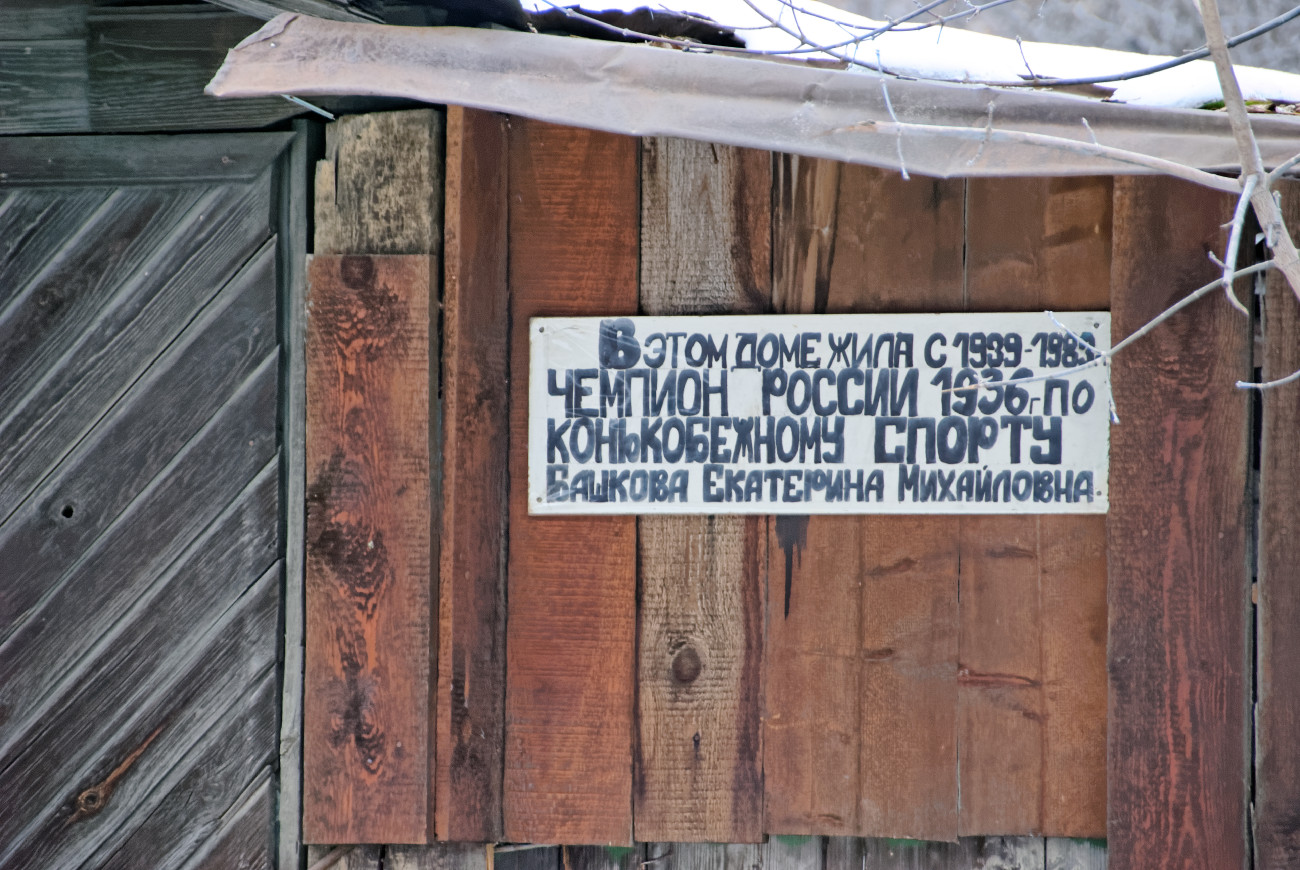 В этом доме жила с 1939-1983
чемпион России 1936г по
конькобежному спорту
Башкова Екатерина Михайловна